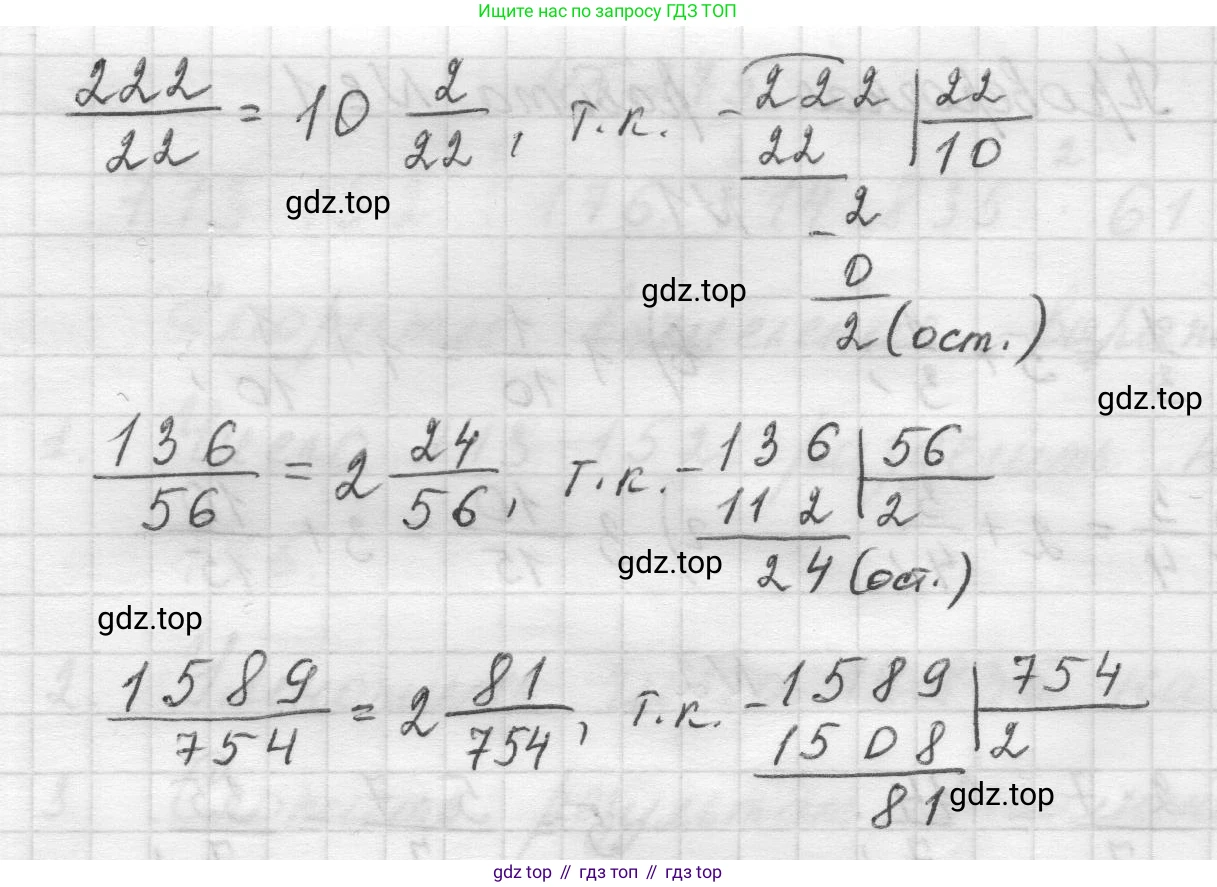 Ищите нас по запросу ГДЗ ТОП
222/22 = 10 2/22, т.к. - 222 | 22
22 | 10
gdz.top
2
-
0
gdz.top
2 (ост.)
gdz.top
136/56 = 2 24/56, т.к. - 136 | 56
112 | 2
gdz.top
24 (ост.)
gdz.top
1589/754 = 2 81/754, т.к. - 1589 | 754
1508 | 2
81
gdz.top
gdz top // гдз топ // gdz top